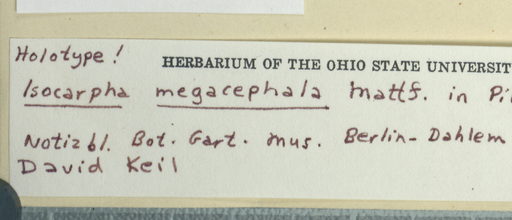 Holotype!
HERBARIUM OF THE OHIO STATE UNIVERSIT
Isocarpha megacephala Mattf. in Pi
Notizbl. Bot. Gart. Mus. Berlin-Dahlem
David Keil